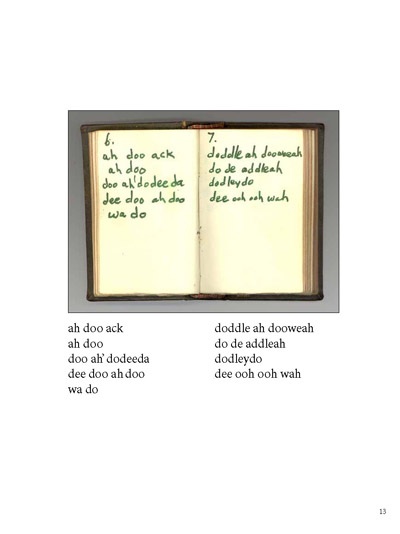 6.
ah doo ack
ah doo
doo ah' dodeeda
dee doo ah doo
wa do
7.
doddle ah dooweah
do de addleah
dodleydo
dee ooh ooh wah
ah doo ack
ah doo
doo ah' dodeeda
dee doo ah doo
wa do
doddle ah dooweah
do de addleah
dodleydo
dee ooh ooh wah
13